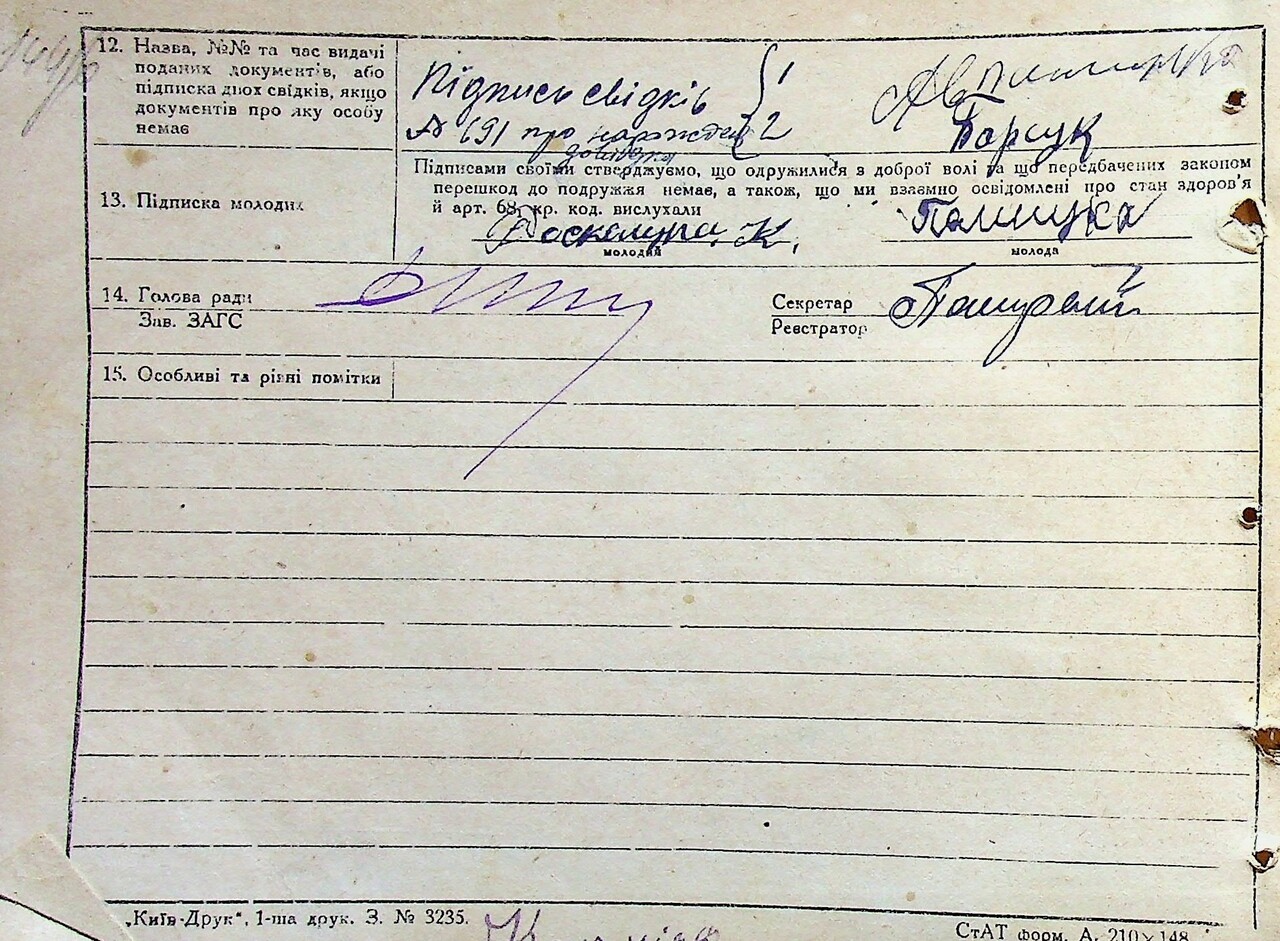 12. Назва, №№ та час видачі
поданих документів, або
підписка двох свідків, якщо
документів про яку особу
немає
Підписи свідків { 1
№ 691 про 2 Борсук
13. Підписка молодих
Підписами своїми стверджуємо, що одружилися з доброї волі та що передбачених законом
перешкод до подружжя немає, а також, що ми взаємно освідомлені про стан здоров'я
й арт. 68, кр. код. вислухали
К.
молодий молода
14. Голова ради
Зав. ЗАГС
Секретар
Реєстратор
15. Особливі та різні помітки
„Київ-Друк“, 1-ша друк. З. № 3235.
СтАТ форм. А. 210×148